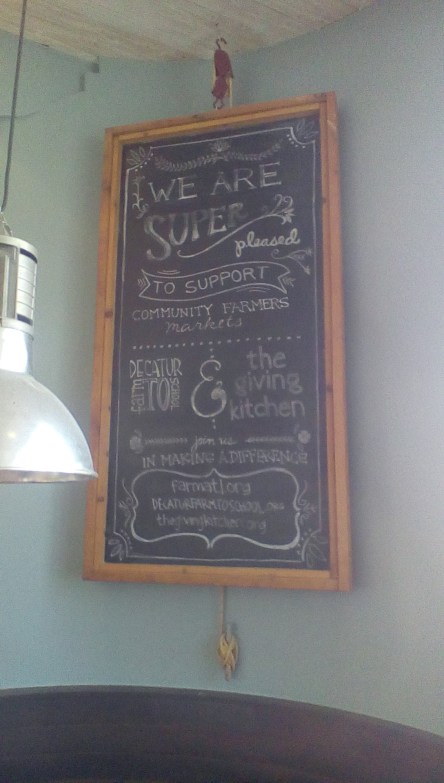 WE ARE
SUPER
pleased
TO SUPPORT
COMMUNITY FARMERS
markets
DECATUR
farm TO SCHOOL
&
the
giving
kitchen
join us
IN MAKING A DIFFERENCE
farmatl.org
DECATURFARMTOSCHOOL.ORG
thegivingkitchen.org